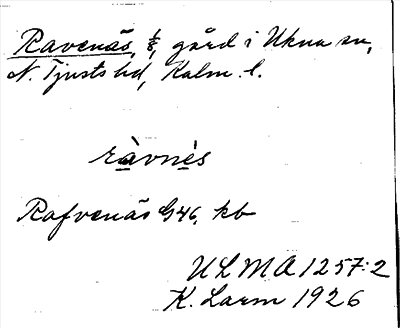 Ravenäs, 1/8, gård i Ukna sn,
N. Tjusts hd, Kalm. l.
ràvnès
Rafvenäs G46, kb
ULMA 1257:2
K. Larm 1926